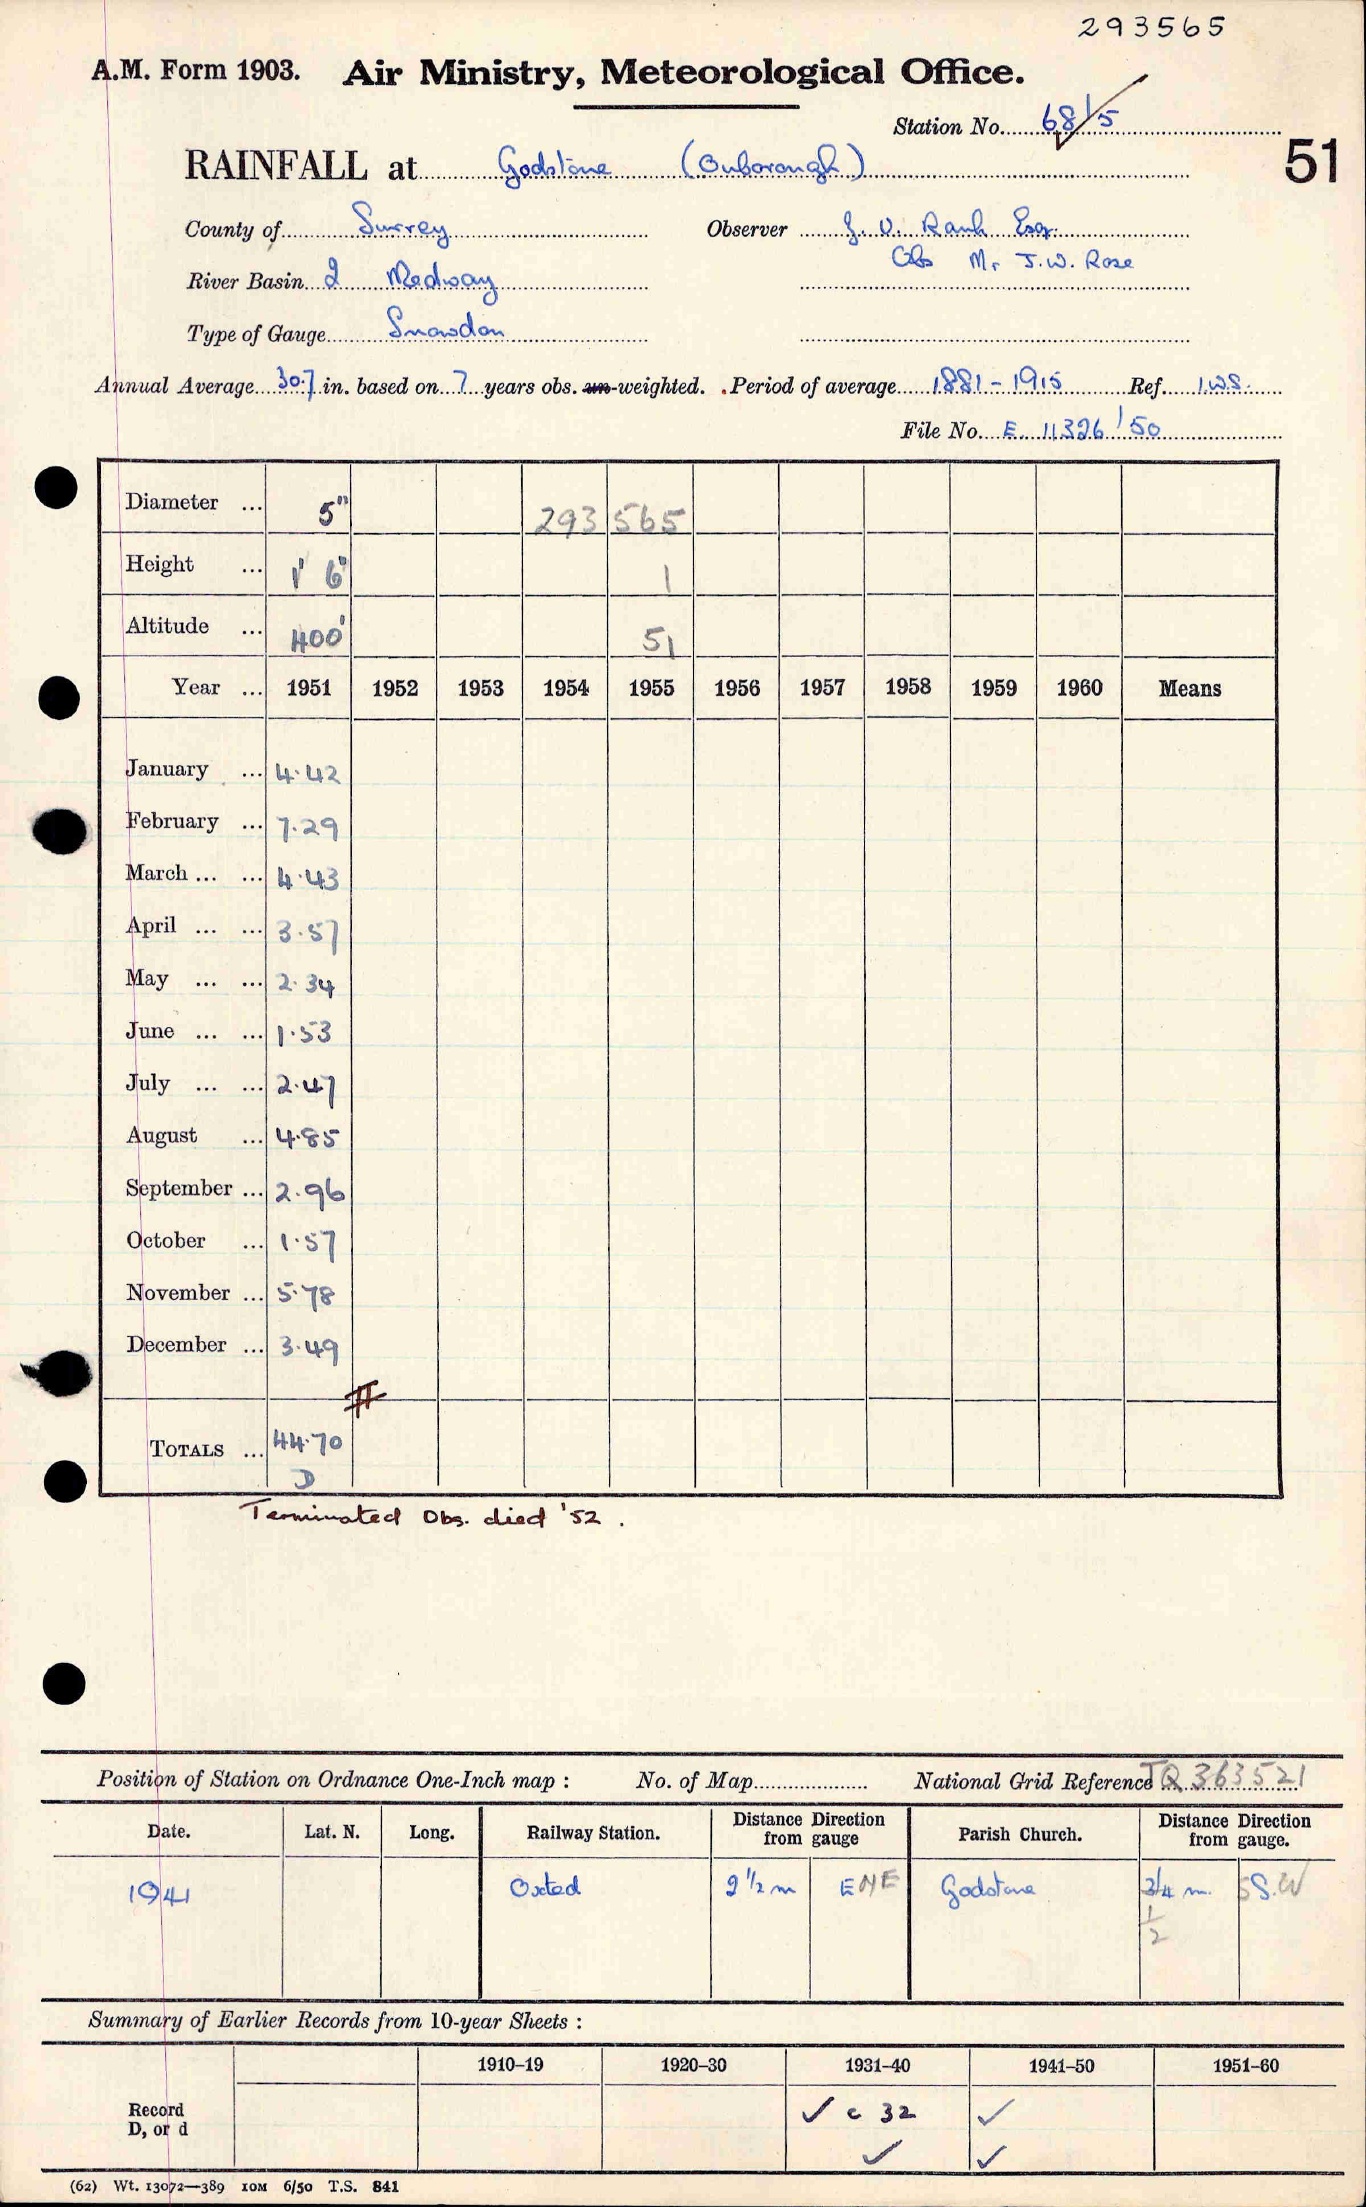 293565
A.M. Form 1903. Air Ministry, Meteorological Office.
Station No. 68/5
51
RAINFALL at Godstone (Ouborough)
County of Surrey Observer J. V. Rank Esq.
Obs Mr J.W. Rose
River Basin 2 Medway
Type of Gauge Snowdon
Annual Average 30.7 in. based on 7 years obs. un-weighted. Period of average 1881-1915 Ref. I.W.S.
File No. E. 11326/50
Diameter ... 5" 293 565
Height ... 1' 6" 1
Altitude ... 400' 51
Year ... 1951 1952 1953 1954 1955 1956 1957 1958 1959 1960 Means
January ... 4.42
February ... 7.29
March ... ... 4.43
April ... ... 3.57
May ... ... 2.34
June ... ... 1.53
July ... ... 2.47
August ... 4.85
September ... 2.96
October ... 1.57
November ... 5.78
December ... 3.49
TOTALS ... 44.70
D
Terminated Obs. died '52.
Position of Station on Ordnance One-Inch map : No. of Map National Grid Reference TQ 363521
Date. Lat. N. Long. Railway Station. Distance Direction from gauge Parish Church. Distance Direction from gauge.
1941 Oxted 2 1/2 m ENE Godstone 3/4 m. SSW
1/2
Summary of Earlier Records from 10-year Sheets :
1910–19 1920–30 1931–40 1941–50 1951–60
Record ✓ c 32 ✓
D, or d ✓ ✓
(62) Wt. 13072—389 10M 6/50 T.S. 841